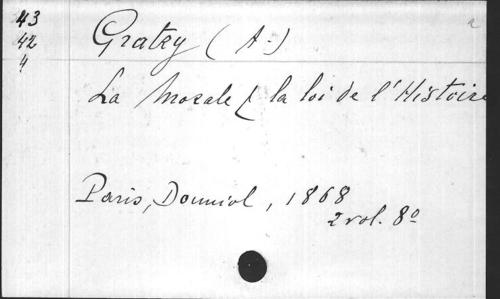 43
42
4
Gratry (A-)
La Morale & la loi de l'Histoire
Paris, Douniol, 1868
2 vol. 8o